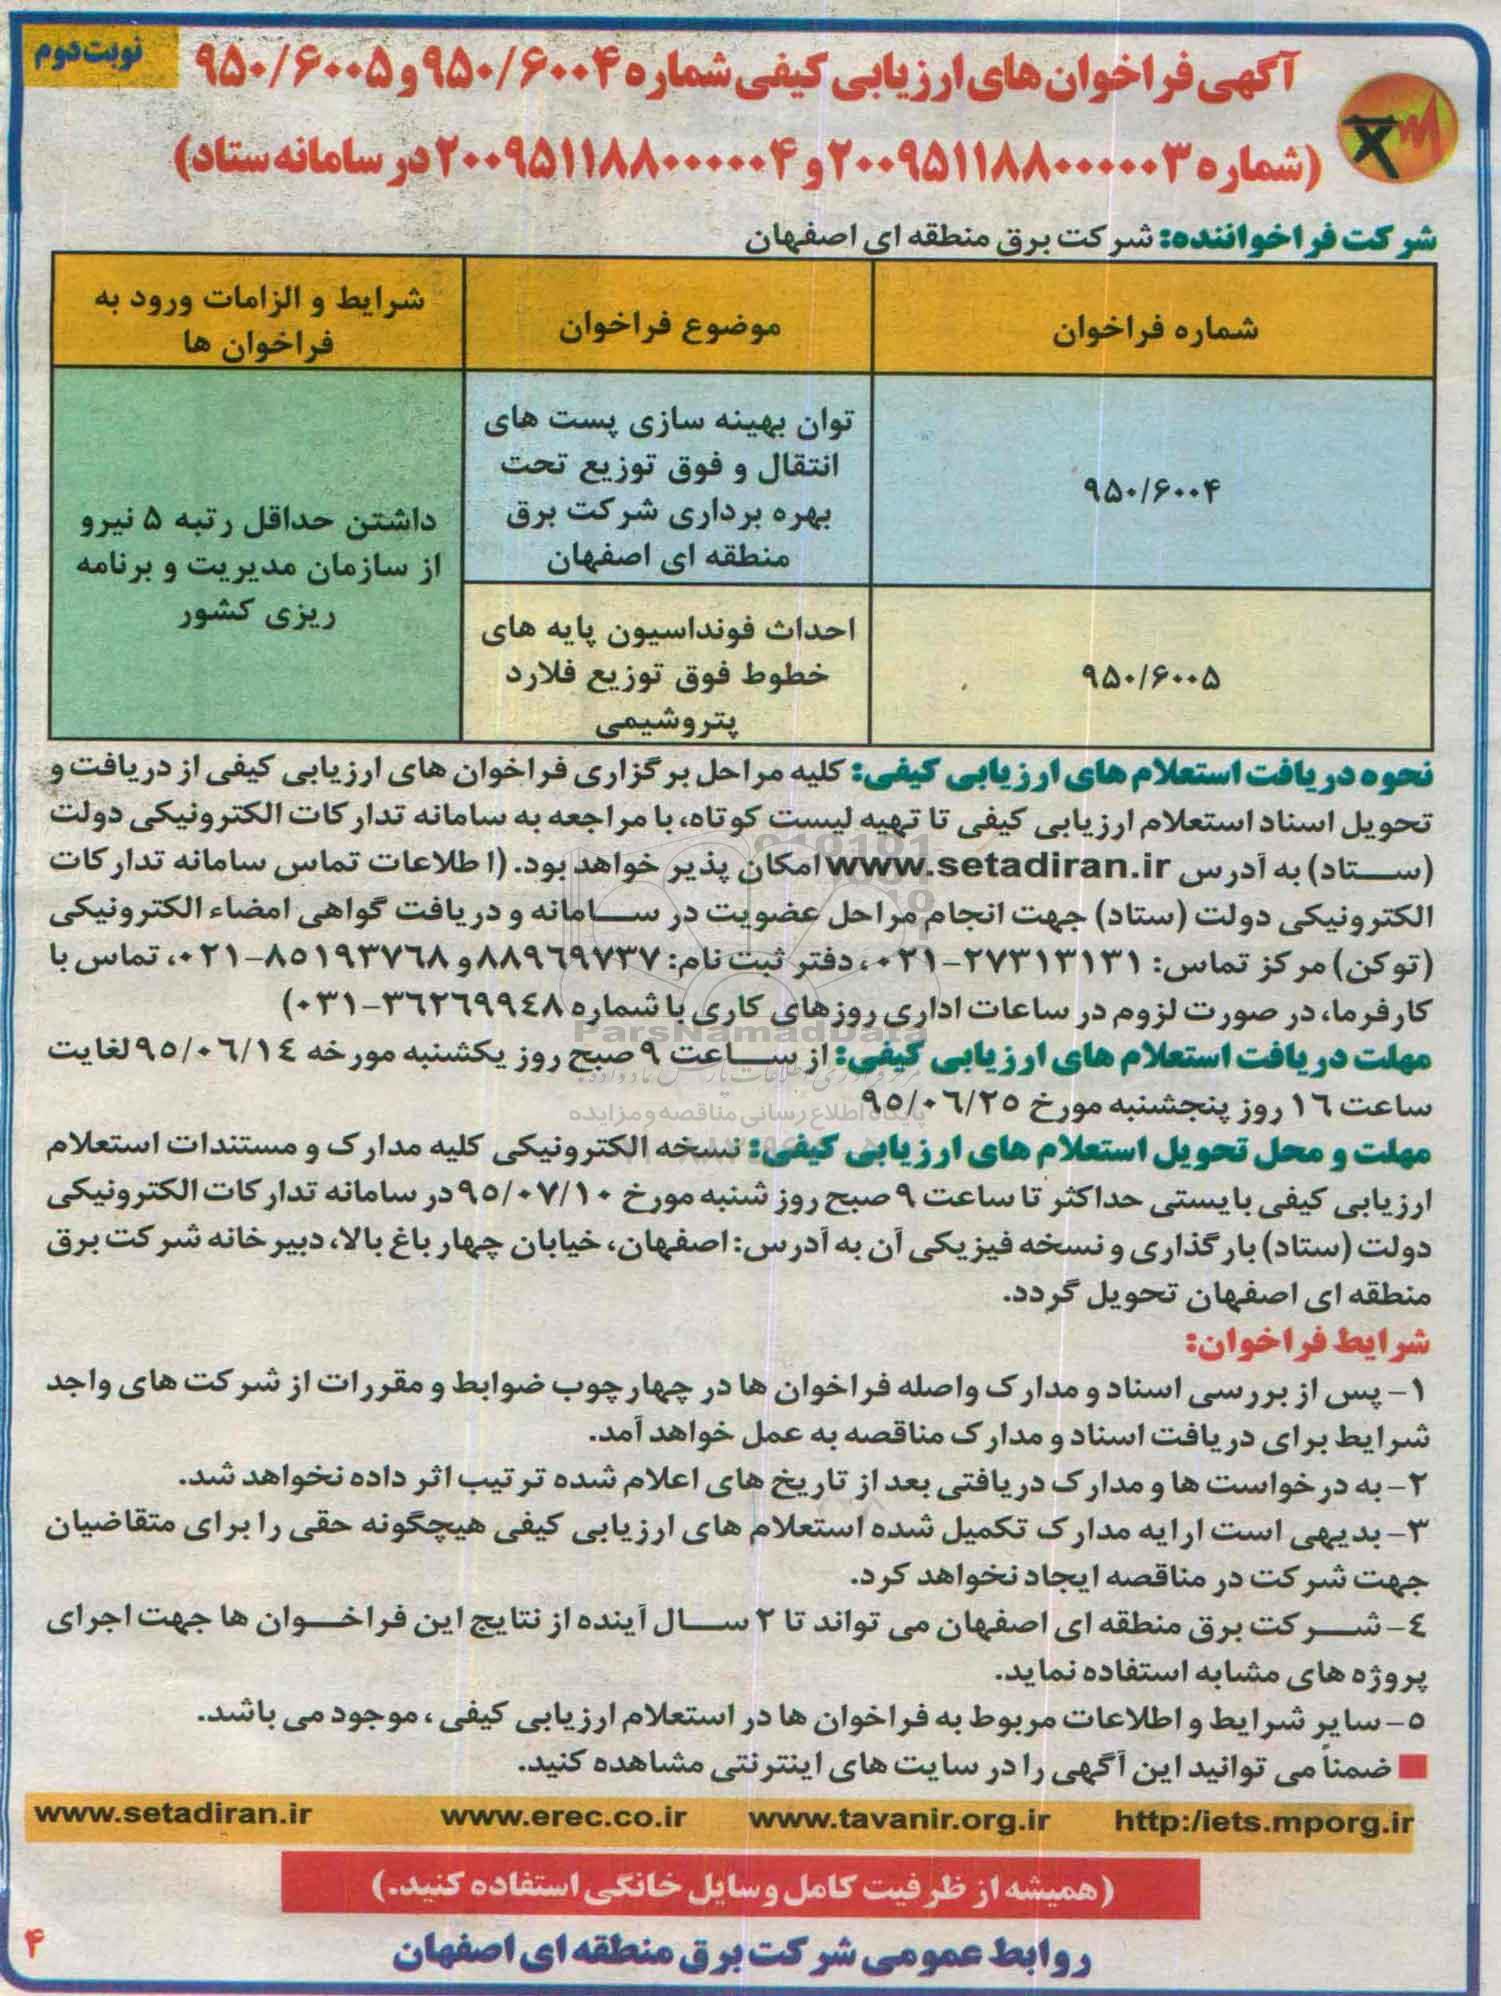 نوبت دوم
آگهی فراخوان های ارزیابی کیفی شماره ۹۵۰/۶۰۰۴ و ۹۵۰/۶۰۰۵
(شماره ۲۰۰۹۵۱۱۸۸۰۰۰۰۰۳ و ۲۰۰۹۵۱۱۸۸۰۰۰۰۰۴ در سامانه ستاد)
شرکت فراخواننده: شرکت برق منطقه ای اصفهان
شماره فراخوان
موضوع فراخوان
شرایط و الزامات ورود به
فراخوان ها
۹۵۰/۶۰۰۴
توان بهینه سازی پست های
انتقال و فوق توزیع تحت
بهره برداری شرکت برق
منطقه ای اصفهان
داشتن حداقل رتبه ۵ نیرو
از سازمان مدیریت و برنامه
ریزی کشور
۹۵۰/۶۰۰۵
احداث فونداسیون پایه های
خطوط فوق توزیع فلارد
پتروشیمی
نحوه دریافت استعلام های ارزیابی کیفی: کلیه مراحل برگزاری فراخوان های ارزیابی کیفی از دریافت و
تحویل اسناد استعلام ارزیابی کیفی تا تهیه لیست کوتاه، با مراجعه به سامانه تدارکات الکترونیکی دولت
(ستاد) به آدرس www.setadiran.ir امکان پذیر خواهد بود. (اطلاعات تماس سامانه تدارکات
الکترونیکی دولت (ستاد) جهت انجام مراحل عضویت در سامانه و دریافت گواهی امضاء الکترونیکی
(توکن) مرکز تماس: ۲۷۳۱۳۱۳۱-۰۲۱، دفتر ثبت نام: ۸۸۹۶۹۷۳۷ و ۸۵۱۹۳۷۶۸-۰۲۱، تماس با
کارفرما، در صورت لزوم در ساعات اداری روزهای کاری با شماره ۳۶۲۶۹۹۴۸-۰۳۱)
ParsNamadData
مهلت دریافت استعلام های ارزیابی کیفی: از ساعت ۹ صبح روز یکشنبه مورخه ۹۵/۰۶/۱۴ لغایت
ساعت ۱۶ روز پنجشنبه مورخ ۹۵/۰۶/۲۵
پایگاه اطلاع رسانی مناقصه و مزایده
مهلت و محل تحویل استعلام های ارزیابی کیفی: نسخه الکترونیکی کلیه مدارک و مستندات استعلام
ارزیابی کیفی بایستی حداکثر تا ساعت ۹ صبح روز شنبه مورخ ۹۵/۰۷/۱۰ در سامانه تدارکات الکترونیکی
دولت (ستاد) بارگذاری و نسخه فیزیکی آن به آدرس: اصفهان، خیابان چهار باغ بالا، دبیرخانه شرکت برق
منطقه ای اصفهان تحویل گردد.
شرایط فراخوان:
۱- پس از بررسی اسناد و مدارک واصله فراخوان ها در چهارچوب ضوابط و مقررات از شرکت های واجد
شرایط برای دریافت اسناد و مدارک مناقصه به عمل خواهد آمد.
۲- به درخواست ها و مدارک دریافتی بعد از تاریخ های اعلام شده ترتیب اثر داده نخواهد شد.
۳- بدیهی است ارایه مدارک تکمیل شده استعلام های ارزیابی کیفی هیچگونه حقی را برای متقاضیان
جهت شرکت در مناقصه ایجاد نخواهد کرد.
۴- شرکت برق منطقه ای اصفهان می تواند تا ۲ سال آینده از نتایج این فراخوان ها جهت اجرای
پروژه های مشابه استفاده نماید.
۵- سایر شرایط و اطلاعات مربوط به فراخوان ها در استعلام ارزیابی کیفی ، موجود می باشد.
ضمناً می توانید این آگهی را در سایت های اینترنتی مشاهده کنید.
www.setadiran.ir www.erec.co.ir www.tavanir.org.ir http:/iets.mporg.ir
(همیشه از ظرفیت کامل وسایل خانگی استفاده کنید.)
روابط عمومی شرکت برق منطقه ای اصفهان
۴